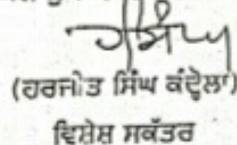 (ਹਰਜੋਤ ਸਿੰਘ ਕੰਦੋਲਾ)
ਵਿਸ਼ੇਸ਼ ਸਕੱਤਰ